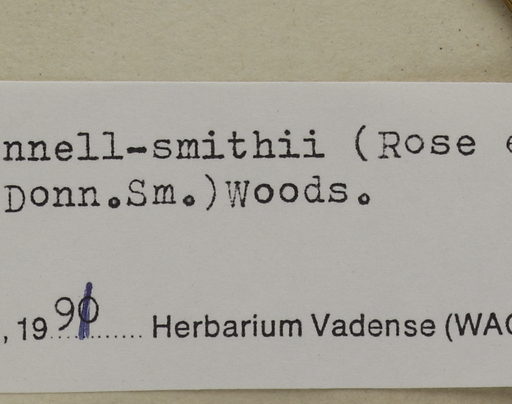 nnell-smithii (Rose e
Donn.Sm.)Woods.
, 19 91 Herbarium Vadense (WAG